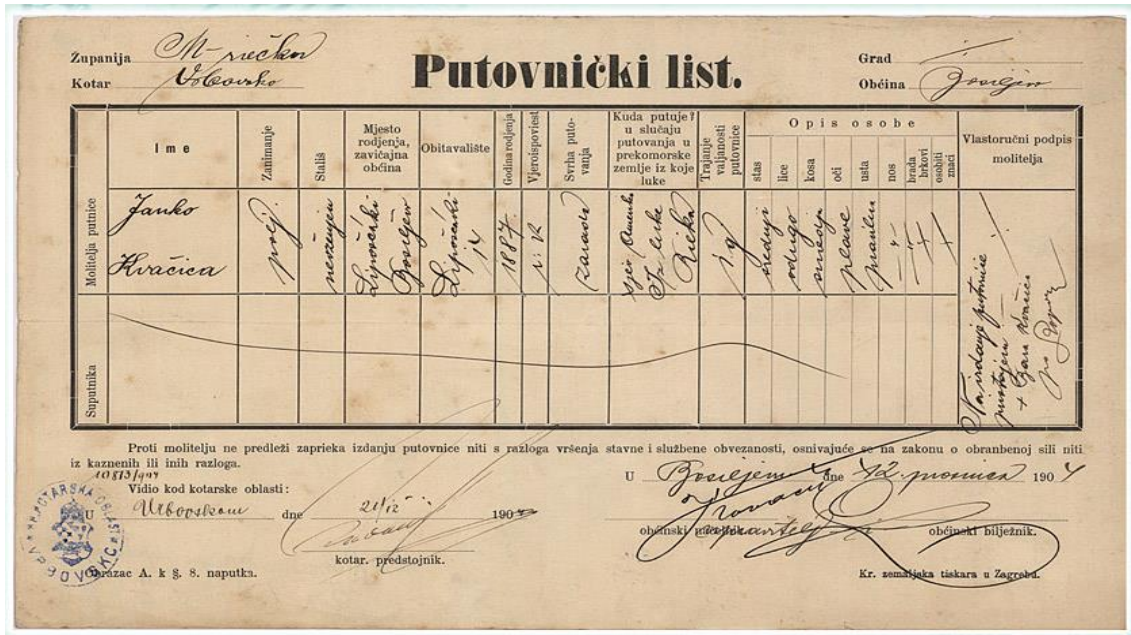 Županija M-riečka
Kotar Vrbovsko
Putovnički list.
Grad
Obćina Bosiljevo
Ime
Zanimanje
Stališ
Mjesto rodjenja, zavičajna obćina
Obitavalište
Godina rodjenja
Vjeroispoviest
Svrha putovanja
Kuda putuje? u slučaju putovanja u prekomorske zemlje iz koje luke
Trajanje valjanosti putovnice
Opis osobe
stas
lice
kosa
oči
usta
nos
brada
brkovi
osobiti znaci
Vlastoručni podpis molitelja
Molitelja putnice
Janko
Kvačica
polj.
neoženjen
Lipovčáki
Bosiljevo
Lipovčáki
14
1887.
r. k
zarada
Iz luke
Rieka
1 g
srednji
smedja
plave
Na izdanje putovnice
pristajem
Kvačica
Suputnika
Proti molitelju ne predleži zaprieka izdanju putovnice niti s razloga vršenja stavne i službene obvezanosti, osnivajuće se na zakonu o obranbenoj sili niti
iz kaznenih ili inih razloga.
Vidio kod kotarske oblasti:
U Vrbovskom dne 21/12 190
kotar. predstojnik.
U Bosiljevu dne 12. prosinca 1904
obćinski načelnik.
upravitelj
obćinski bilježnik.
KOTARSKA OBLAST
Obrazac A. k §. 8. naputka.
Kr. zemaljska tiskara u Zagrebu.